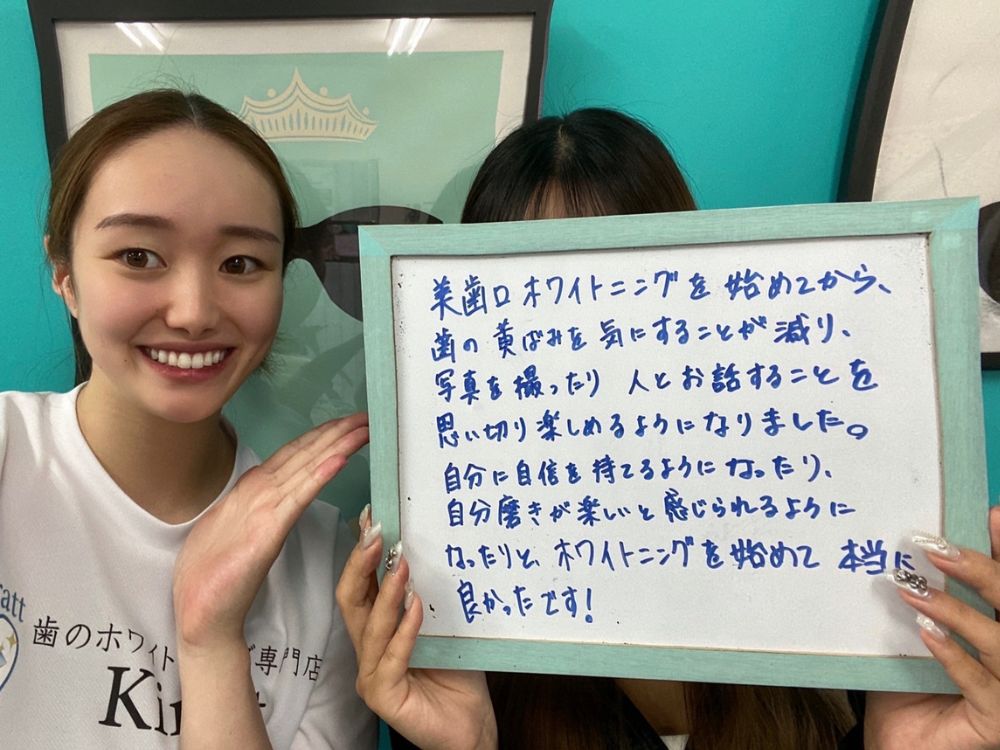 美歯口ホワイトニングを始めてから、
歯の黄ばみを気にすることが減り、
写真を撮ったり 人とお話することを
思い切り楽しめるようになりました。
自分に自信を持てるようになったり、
自分磨きが楽しいと感じられるように
なったりと、ホワイトニングを始めて 本当に
良かったです!
att
歯のホワイト
専門店
Ki